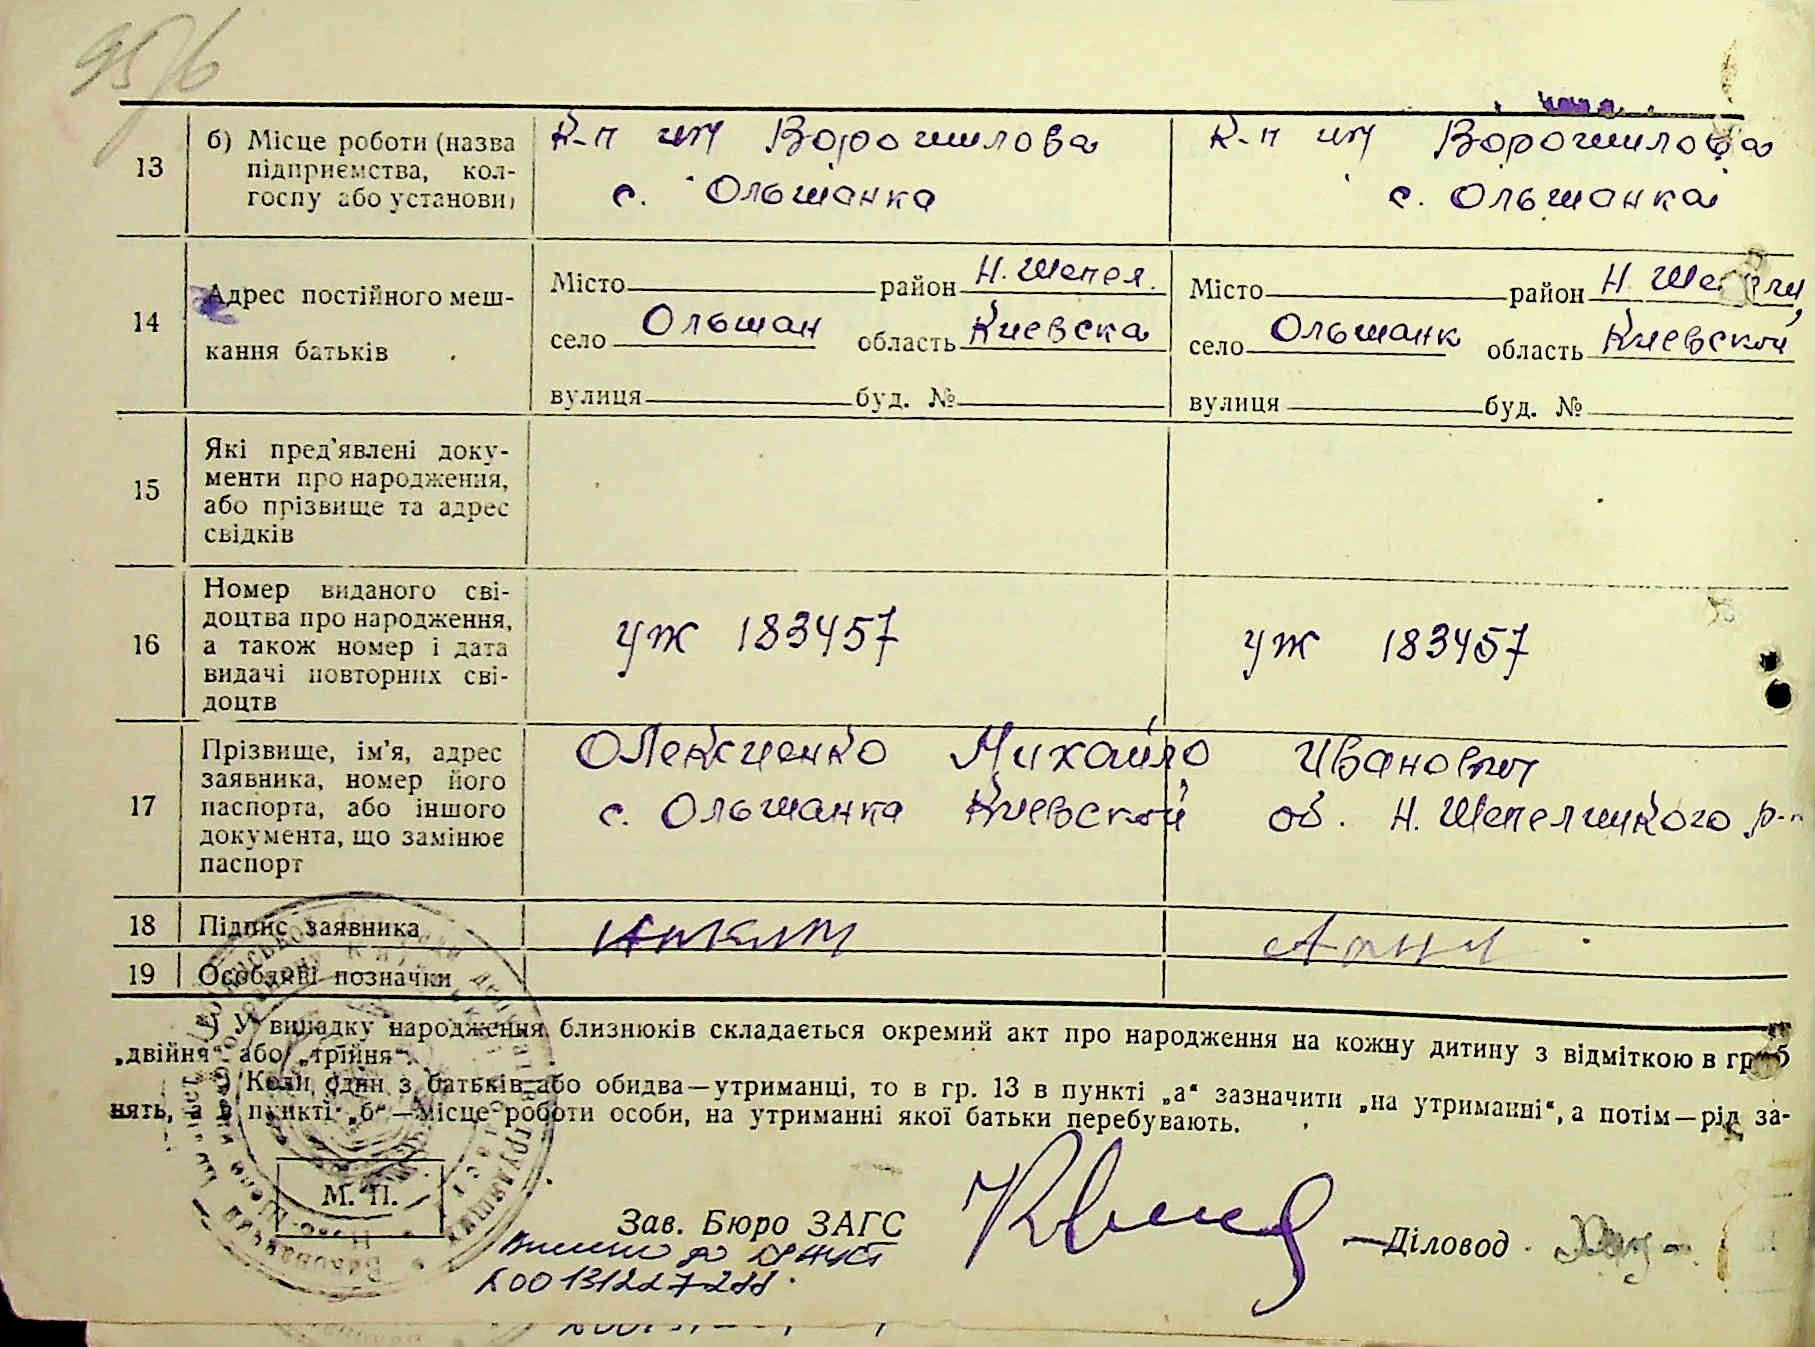 95/6
13 б) Місце роботи (назва підприємства, колгоспу або установи) К-п им Ворошилова с. Ольшанка К-п им Ворошилова с. Ольшанка
14 Адрес постійного мешкання батьків
Місто район Н. Шепел. Місто район Н. Шепели
село Ольшан область Киевска село Ольшанк область Киевской
вулиця буд. № вулиця буд. №
15 Які пред'явлені доку-
менти про народження,
або прізвище та адрес
свідків
16 Номер виданого сві-
доцтва про народження,
а також номер і дата
видачі повторних сві-
доцтв
УЖ 183457 УЖ 183457
17 Прізвище, ім'я, адрес
заявника, номер його
паспорта, або іншого
документа, що замінює
паспорт
Олексиенко Михайло Иванович
с. Ольшанка Киевской об. Н. Шепелицкого р-н
18 Підпис заявника
19 Особливі позначки
¹) У випадку народження близнюків складається окремий акт про народження на кожну дитину з відміткою в гр. 5
„двійня“ або „трійня“.
²) Коли один з батьків або обидва—утриманці, то в гр. 13 в пункті „а“ зазначити „на утриманні“, а потім—рід за-
нять, а в пункті „б“—місце роботи особи, на утриманні якої батьки перебувають.
М. П.
Зав. Бюро ЗАГС Діловод